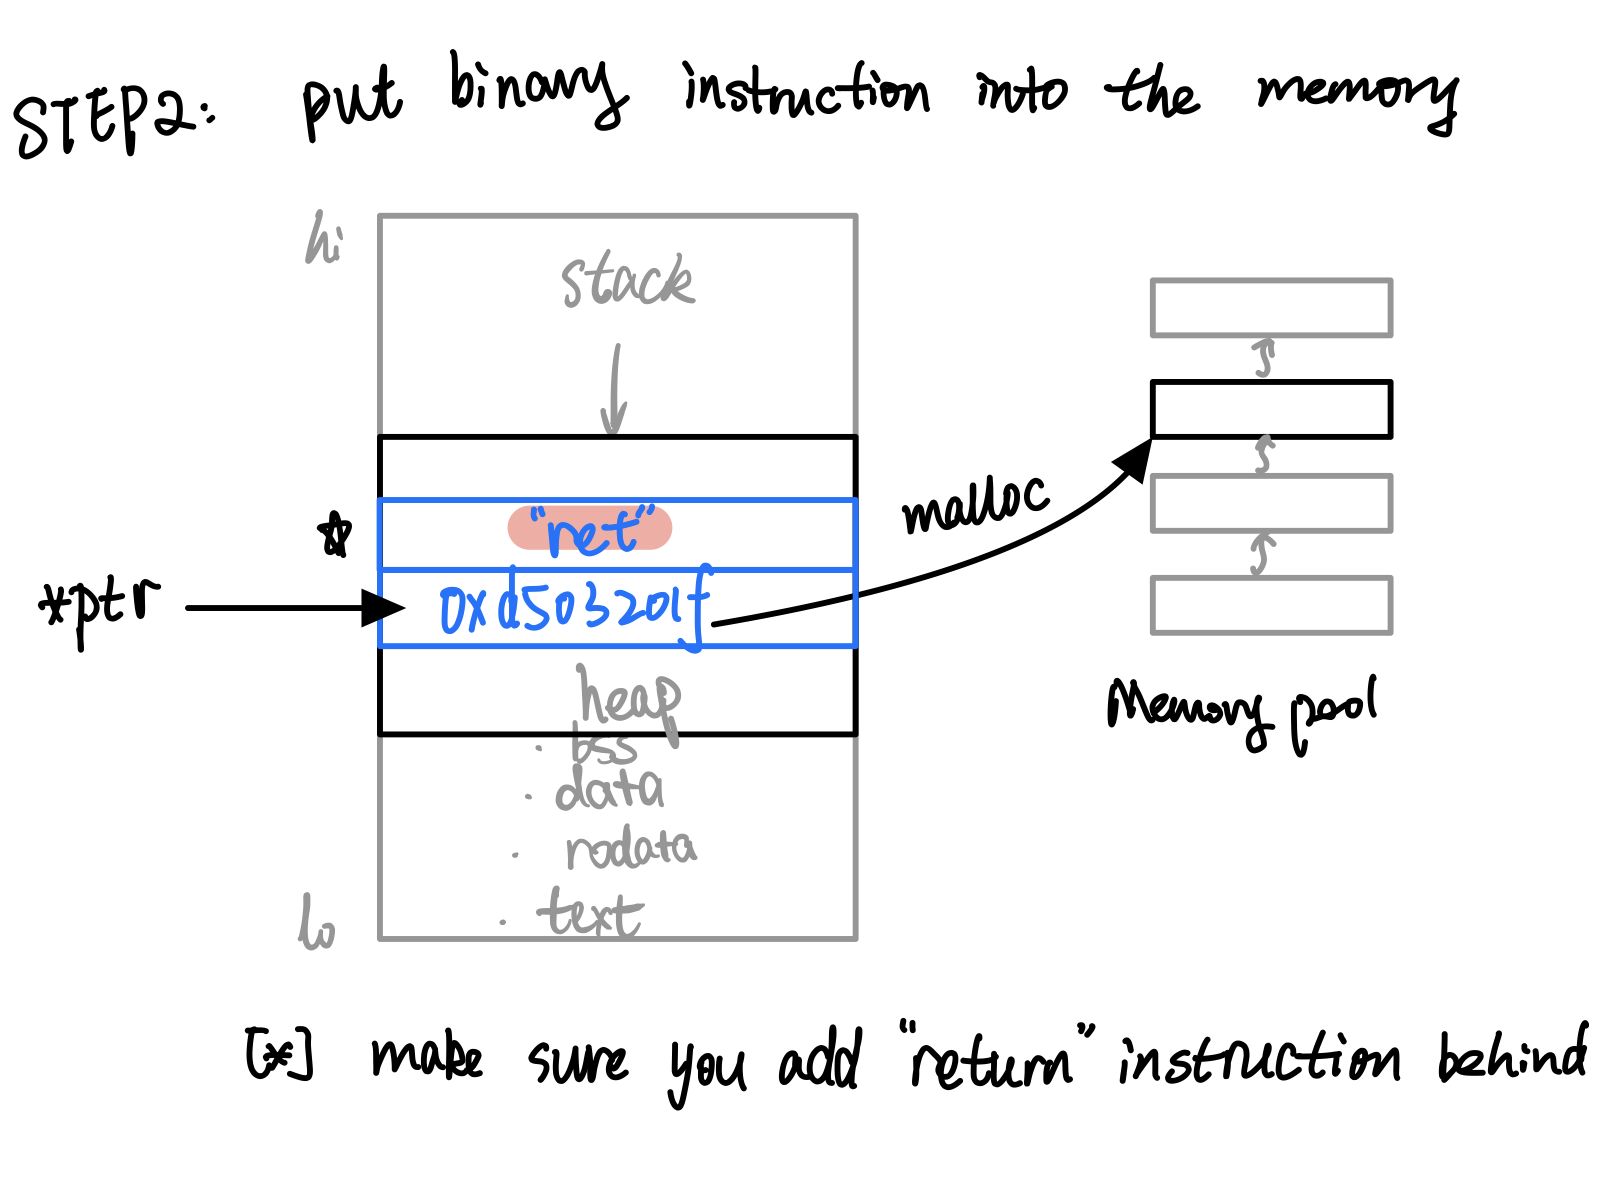 STEP2: put binary instruction into the memory
hi
stack
"ret"
*ptr
0xd503201f
malloc
heap
. bss
. data
. rodata
. text
lo
Memory pool
[*] make sure you add "return" instruction behind